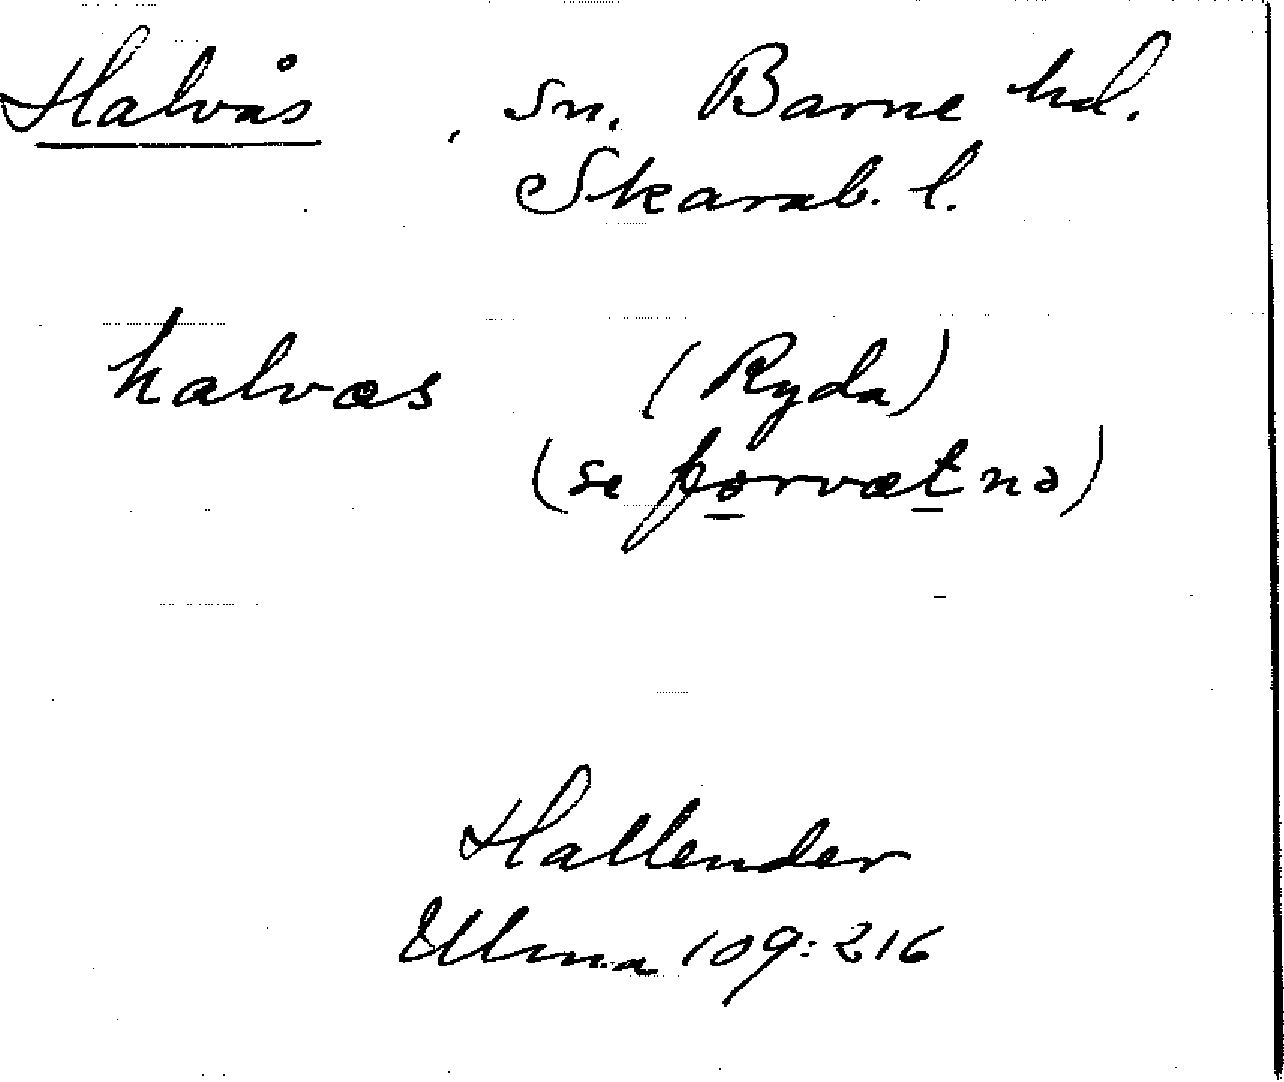 Halvås , sn. Barne hd.
Skarab. l.
halvæs (Ryda)
(se førvætnə)
Hallender
Ulma 109:216